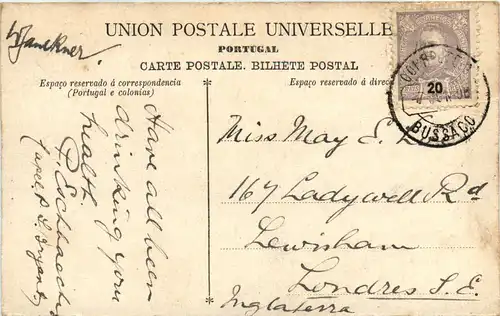 W Faulkner.
UNION POSTALE UNIVERSELLE
PORTUGAL
CARTE POSTALE. BILHETE POSTAL
Espaço reservado á correspondencia
(Portugal e colonias)
Espaço reservado á direc
20
BUSSACO
Have all been
drinking your
health
Miss May E.
167 Ladywell Rd
Lewisham
Londres S.E.
Inglaterra